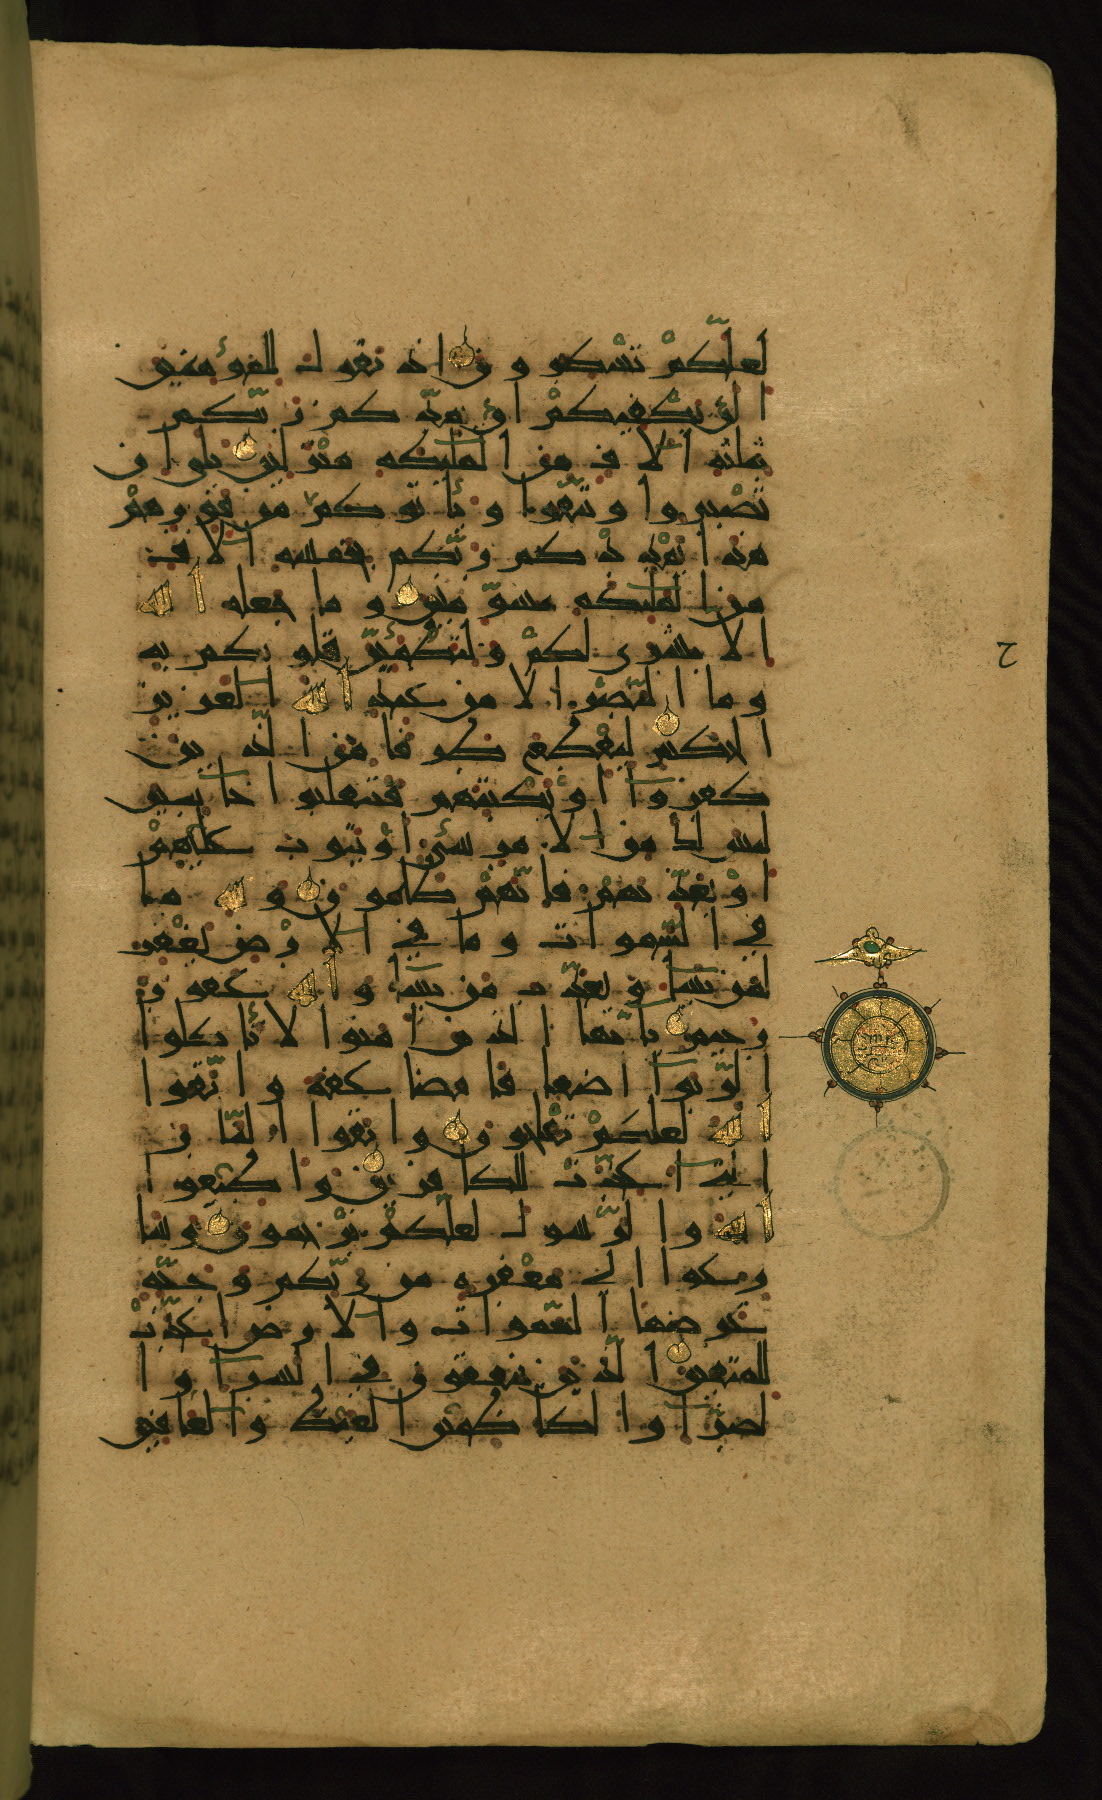 لعلكم تشكرون اذ تقول للمؤمنين
الن يكفيكم ان يمدكم ربكم
بثلثه الاف من الملئكه منزلين بلى ان
تصبروا وتتقوا وياتوكم من فورهم
هذا يمددكم ربكم بخمسه الاف
من الملئكه مسومين وما جعله الله
الا بشرى لكم ولتطمئن قلوبكم به
وما النصر الا من عند الله العزيز
الحكيم ليقطع طرفا من الذين
كفروا او يكبتهم فينقلبوا خائبين
ليس لك من الامر شيء او يتوب عليهم
او يعذبهم فانهم ظلمون ولله ما
في السموات وما في الارض يغفر
لمن يشاء ويعذب من يشاء والله غفور
رحيم يايها الذين امنوا لا تاكلوا
الربوا اضعافا مضاعفه واتقوا
الله لعلكم تفلحون واتقوا النار
التي اعدت للكافرين واطيعوا
الله والرسول لعلكم ترحمون وسا
رعوا الى مغفره من ربكم وجنه
عرضها السموات والارض اعدت
للمتقين الذين ينفقون في السراء وا
لضراء والكاظمين الغيظ والعافين